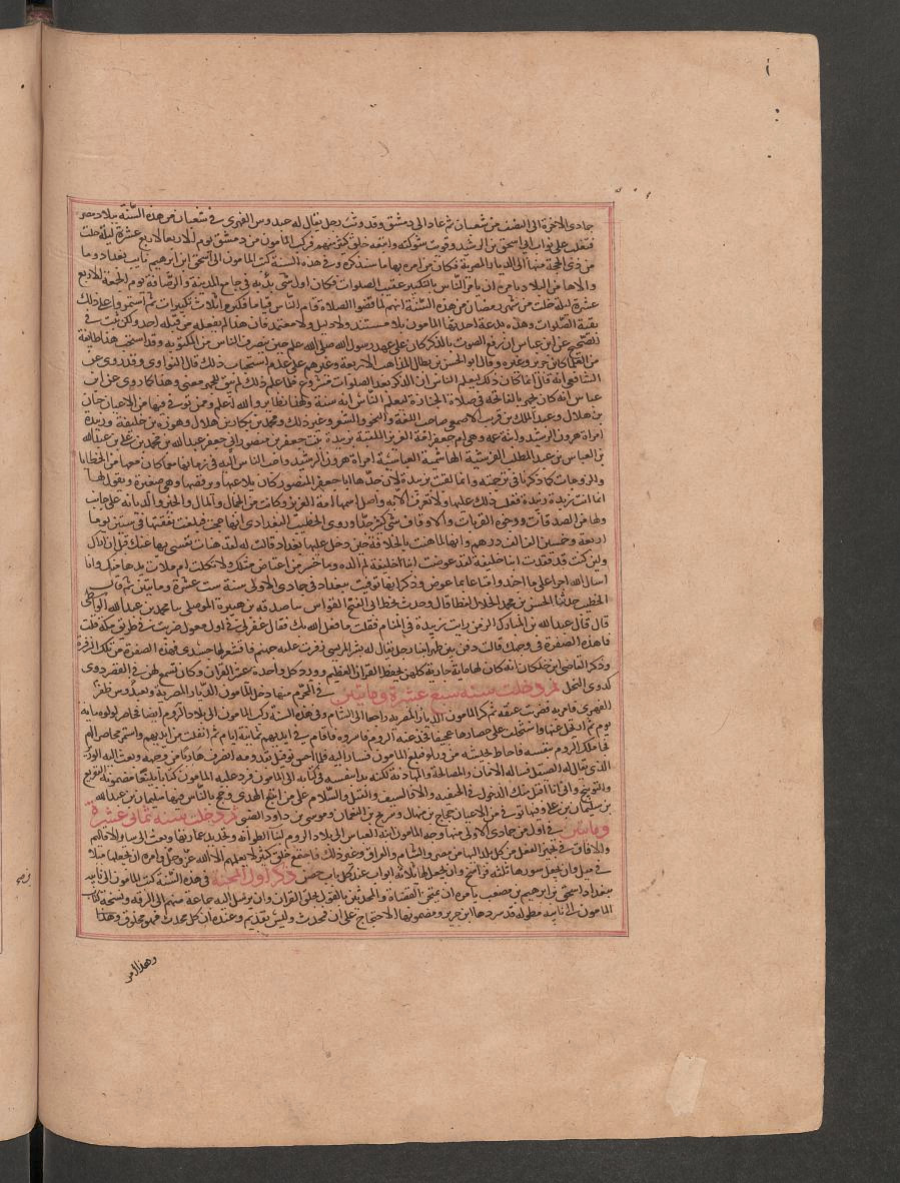 جمادى الاخرة الى النصف من شعبان ثم عاد الى دمشق وقد وثب رجل يقال له عبدوس الفهري في شعبان من هذه السنة ببلاد مصر
فتغلب على نواب ابي اسحق بن الرشيد وقويت شوكته واتبعه خلق كثير منهم فركب المامون من دمشق يوم الاربعا لاربع عشرة ليلة خلت
من ذي الحجة منها الى الديار المصرية فكان من امره بها ما سنذكره وفي هذه السنة كتب المامون الى اسحق ابن ابرهيم نايب بغداد وما
والاها من البلاد يامره ان يامر الناس بالتكبير عقب الصلوات فكان اول شي بدئ به في جامع المدينة والرصافة يوم الجمعة لاربع
عشرة ليلة خلت من شهر رمضان من هذه السنة انهم لما قضوا الصلاة قام الناس قياما فكبروا ثلاث تكبيرات ثم استمروا على ذلك
بقية الصلوات وهذه بدعة احدثها المامون بلا مستند ولا دليل ولا معتمد فان هذا لم يفعله من قبله احد ولكن ثبت في
الصحيح عن ابن عباس ان رفع الصوت بالذكر كان على عهد رسول الله صلى الله عليه حين ينصرف الناس من المكتوبة وقد استحب هذا طايفة
من العلما كابن حزم وغيره وقال ابو الحسن بن بطال المذاهب الاربعة وغيرهم على عدم استحباب ذلك قال النواوي وقد روي عن
الشافعي انه قال انما كان ذلك ليعلم الناس ان الذكر بعد الصلوات مشروع فلما علم ذلك لم يبق للجهر معنى وهذا كما روي عن ابن
عباس انه كان يجهر بالفاتحة في صلاة الجنازة ليعلم الناس انه سنة ولهذا نظاير والله اعلم وممن توفي فيها من الاعيان حبان
بن هلال وعبد الملك بن قريب الاصمعي صاحب اللغة والنحو والشعر وغير ذلك ومحمد بن بكار بن هلال وهوذة بن خليفة وزبيدة
امراة هرون الرشيد وابنة عمه وهي ام جعفر امة العزيز الملقبة بزبيدة بنت جعفر بن منصور ابي جعفر عبد الله بن محمد بن علي بن عبد الله
بن العباس بن عبد المطلب القرشية الهاشمية العباسية امراة هرون الرشيد واحب الناس اليه في زمانها مع ما كان معها من الحظايا
والزوجات كما ذكرنا في ترجمته وانما لقبت بزبيدة لان جدها ابا جعفر المنصور كان يلاعبها ويرقصها وهي صغيرة ويقول لها
انما انت زبيدة وبدة فغلب ذلك عليها ولا تعرف الا به واصل اسمها امة العزيز وكانت من الجمال والمال والخير والديانة على جانب
ولها من الصدقات ووجوه القربات والاوقاف شي كثير جدا وروى الخطيب البغدادي انها حجت فبلغت نفقتها في ستين يوما
اربعة وخمسين الف الف درهم وانها لما هنت بالخلافة حين دخل عليها بغداد قالت له لقد هنات نفسي بها عنك قبل ان اراك
ولين كنت قد فقدت ابنا خليفة لقد عوضت ابنا خليفة لم الده وما خسر من اعتاض مثلك ولا ثكلت ام ملات يدها منك وانا
اسال الله اجرا على ما اخذ وامتاعا بما عوض وذكر انها توفيت ببغداد في جمادى الاولى سنة ست عشرة ومايتين ثم قال
الخطيب حدثنا الحسن بن محمد الخلال لفظا قال وجدت بخط ابي الفتح القواس ثنا صدقة بن هبيرة الموصلي ثنا محمد بن عبد الله الواسطي
قال قال عبد الله بن المبارك الزمن رايت زبيدة في المنام فقلت ما فعل الله بك فقال غفر لي في اول معول ضرب في طريق مكة قلت
فما هذه الصفرة في وجهك قالت دفن بين ظهرانينا رجل يقال له بشر المريسي زفرت عليه جهنم فاقشعر لها جسدي فهذه الصفرة من تلك الزفرة
وذكر القاضي ابن خلكان انه كان لها ماية جارية كلهن يحفظ القران العظيم وورد كل واحدة عشر القران وكان يسمع لهن في القصر دوي
كدوي النحل ثم دخلت سنة سبع عشرة ومايتين في المحرم منها دخل المامون الديار المصرية وظفر بعبدوس
الفهري فامر به فضربت عنقه ثم كر المامون راجعا الى الشام وفي هذه السنة ركب المامون الى بلاد الروم ايضا فحاصر لولوة ماية
يوم ثم ارتحل عنها واستخلف على حصارها عجيفا فخدعته الروم فاسروه فاقام في ايديهم ثمانية ايام ثم انفلت من ايديهم واستمر محاصرا لهم
فجا ملك الروم بنفسه فاحاط بجيشه من وراه فبلغ المامون فسار اليه فلما احس توفيل بقدومه انصرف هاربا من وجهه وبعث اليه الوزير
الذي يقال له الصنغل فساله الامان والمصالحة والمهادنة لكنه بدا بنفسه في كتابه الى المامون فرد عليه المامون كتابا بليغا مضمونه التقريع
والتوبيخ واني انما اقبل منك الدخول في الحنيفية والا فالسيف والقتل والسلام على من اتبع الهدى وحج بالناس فيها سليمان بن عبد الله
بن سليمان بن علي وفيها توفي من الاعيان حجاج بن منهال وسريج بن النعمان وموسى بن داود الضبي ثم دخلت سنة ثماني عشرة
ومايتين في اول من جمادى الاولى منها وجه المامون ابنه العباس الى بلاد الروم لبنا الطوانة وتجديد عمارتها وبعث الى ساير الاقاليم
والافاق في تجهيز الفعلة من كل بلد اليها من مصر والشام والعراق وغير ذلك فاجتمع خلق كثير لا يعلمهم الا الله عز وجل وامره ان يجعلها ميلا
في ميل وان يجعل سورها ثلثة فراسخ وان يجعل لها ثلاثة ابواب عند كل باب حصن ذكر اول المحنة في هذه السنة كتب المامون الى نايبه
ببغداد اسحق بن ابرهيم بن مصعب يامره ان يمتحن القضاة والمحدثين بالقول بخلق القران وان يرسل اليه جماعة منهم الى الرقة ونسخة كتاب
المامون الى نايبه مطولة قد سردها ابن جرير ومضمونها الاحتجاج على ان محدث وليس بقديم وعنده ان كل محدث فهو مخلوق وهذا
وهذا امر